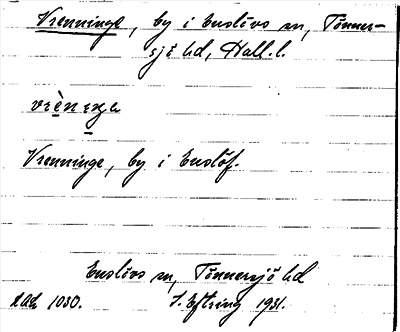 Vrenninge, by i Enslövs sn, Tönner-
sjö hd, Hall. l.
vrèneŋa
Vrenninge, by i Enslöf.
Enslövs sn, Tönnersjö hd
1030.
1931.